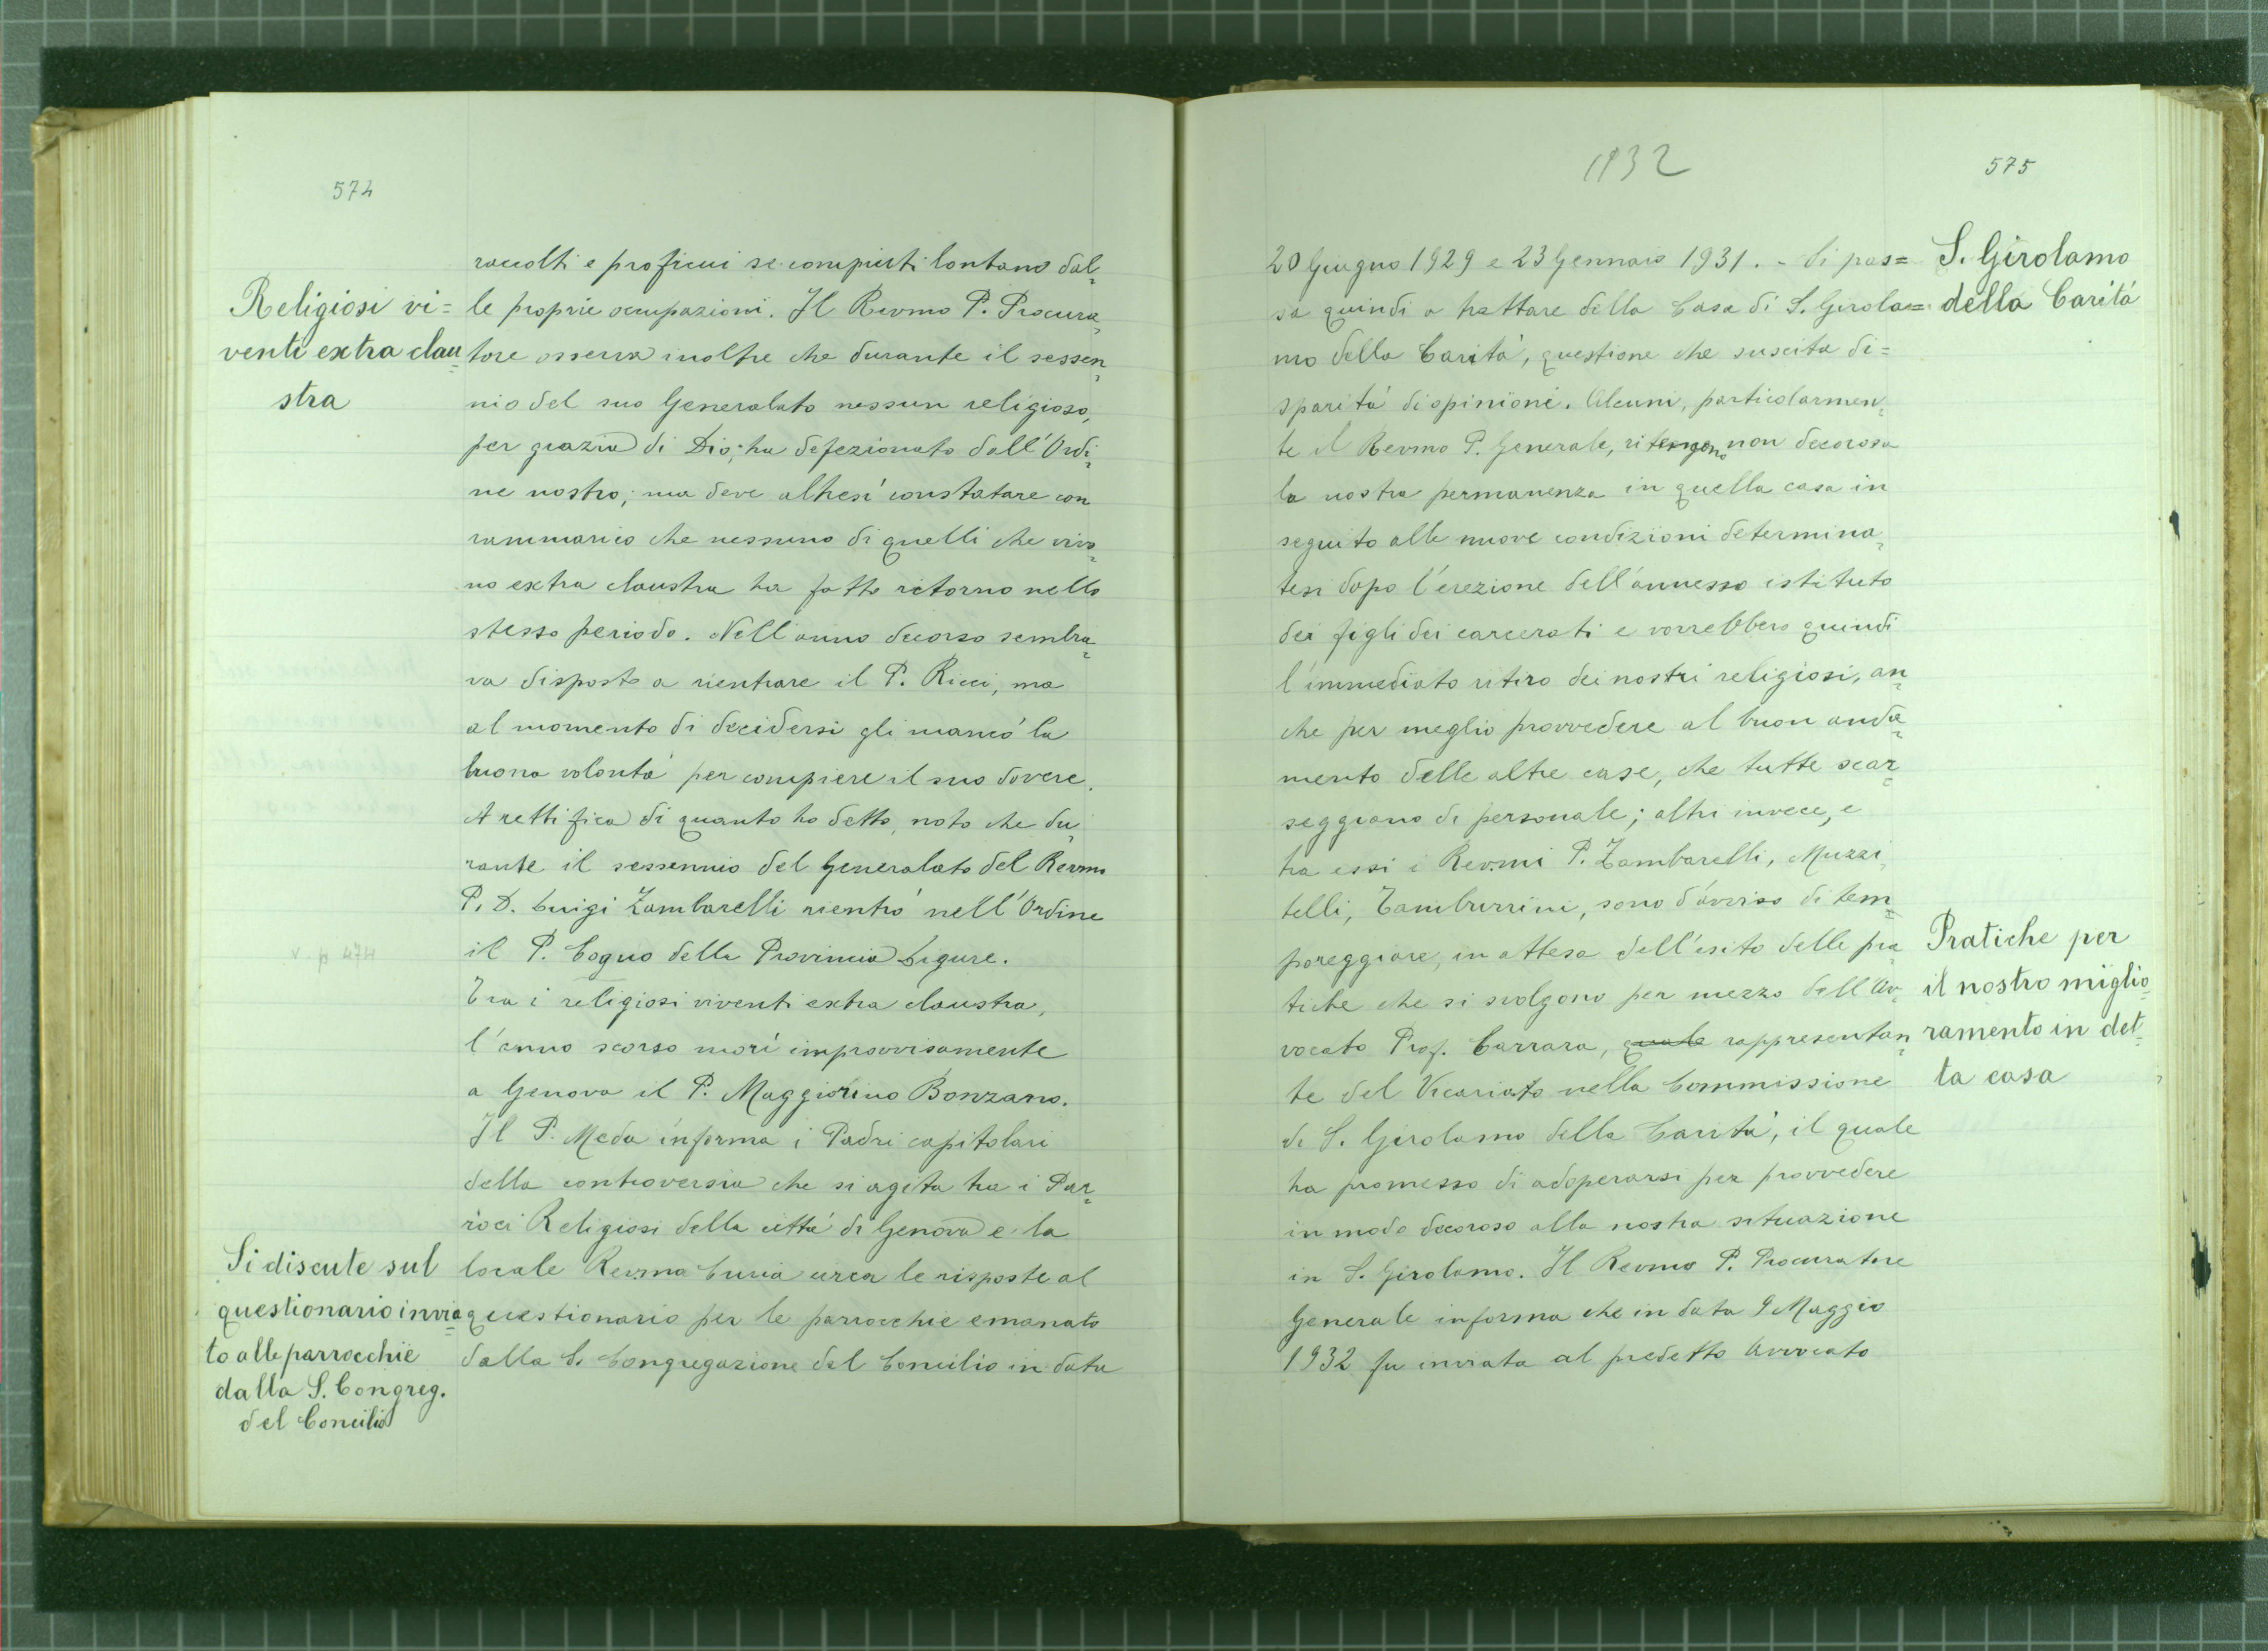 574
Religiosi vi=
venti extra clau=
stra
raccolti e proficui se compiuti lontano dal=
le proprie occupazioni. Il Revmo P. Procura=
tore osserva inoltre che durante il sessen=
nio del suo Generalato nessun religioso,
per grazia di Dio, ha defezionato dall'Ordi=
ne nostro; ma deve altresì constatare con
rammarico che nessuno di quelli che vivo=
no extra claustra ha fatto ritorno nello
stesso periodo. Nell'anno decorso sembra=
va disposto a rientrare il P. Ricci, ma
al momento di decidersi gli mancò la
buona volontà per compiere il suo dovere.
A rettifica di quanto ho detto, noto che du=
rante il sessennio del Generalato del Revmo
P. D. Luigi Zambarelli rientrò nell'Ordine
il P. Cogno della Provincia Ligure.
Tra i religiosi viventi extra claustra,
l'anno scorso morì improvvisamente
a Genova il P. Maggiorino Bonzano.
Il P. Meda informa i Padri capitolari
della controversia che si agita tra i Par=
roci Religiosi della città di Genova e la
locale Revma Curia circa le risposte al
questionario per le parrocchie emanato
dalla S. Congregazione del Concilio in data
Si discute sul
questionario invia=
to alle parrocchie
dalla S. Congreg.
del Concilio
1932
575
20 Giugno 1929 e 23 Gennaio 1931. - Si pas=
sa quindi a trattare della Casa di S. Girola=
mo della Carità, questione che suscita di=
sparità di opinioni. Alcuni, particolarmen=
te il Revmo P. Generale, ritengono non decorosa
la nostra permanenza in quella casa in
seguito alle nuove condizioni determina=
tesi dopo l'erezione dell'annesso istituto
dei figli dei carcerati e vorrebbero quindi
l'immediato ritiro dei nostri religiosi, an=
che per meglio provvedere al buon anda=
mento delle altre case, che tutte scar=
seggiano di personale; altri invece, e
tra essi i Revmi P. Zambarelli, Muzzi=
telli, Tamburrini, sono d'avviso di tem=
poreggiare, in attesa dell'esito delle pra=
tiche che si svolgono per mezzo dell'Av=
vocato Prof. Carrara, quale rappresentan=
te del Vicariato nella Commissione
di S. Girolamo della Carità, il quale
ha promesso di adoperarsi per provvedere
in modo decoroso alla nostra situazione
in S. Girolamo. Il Revmo P. Procuratore
Generale informa che in data 9 Maggio
1932 fu inviata al predetto Avvocato
S. Girolamo
della Carità
Pratiche per
il nostro miglio=
ramento in det=
ta casa